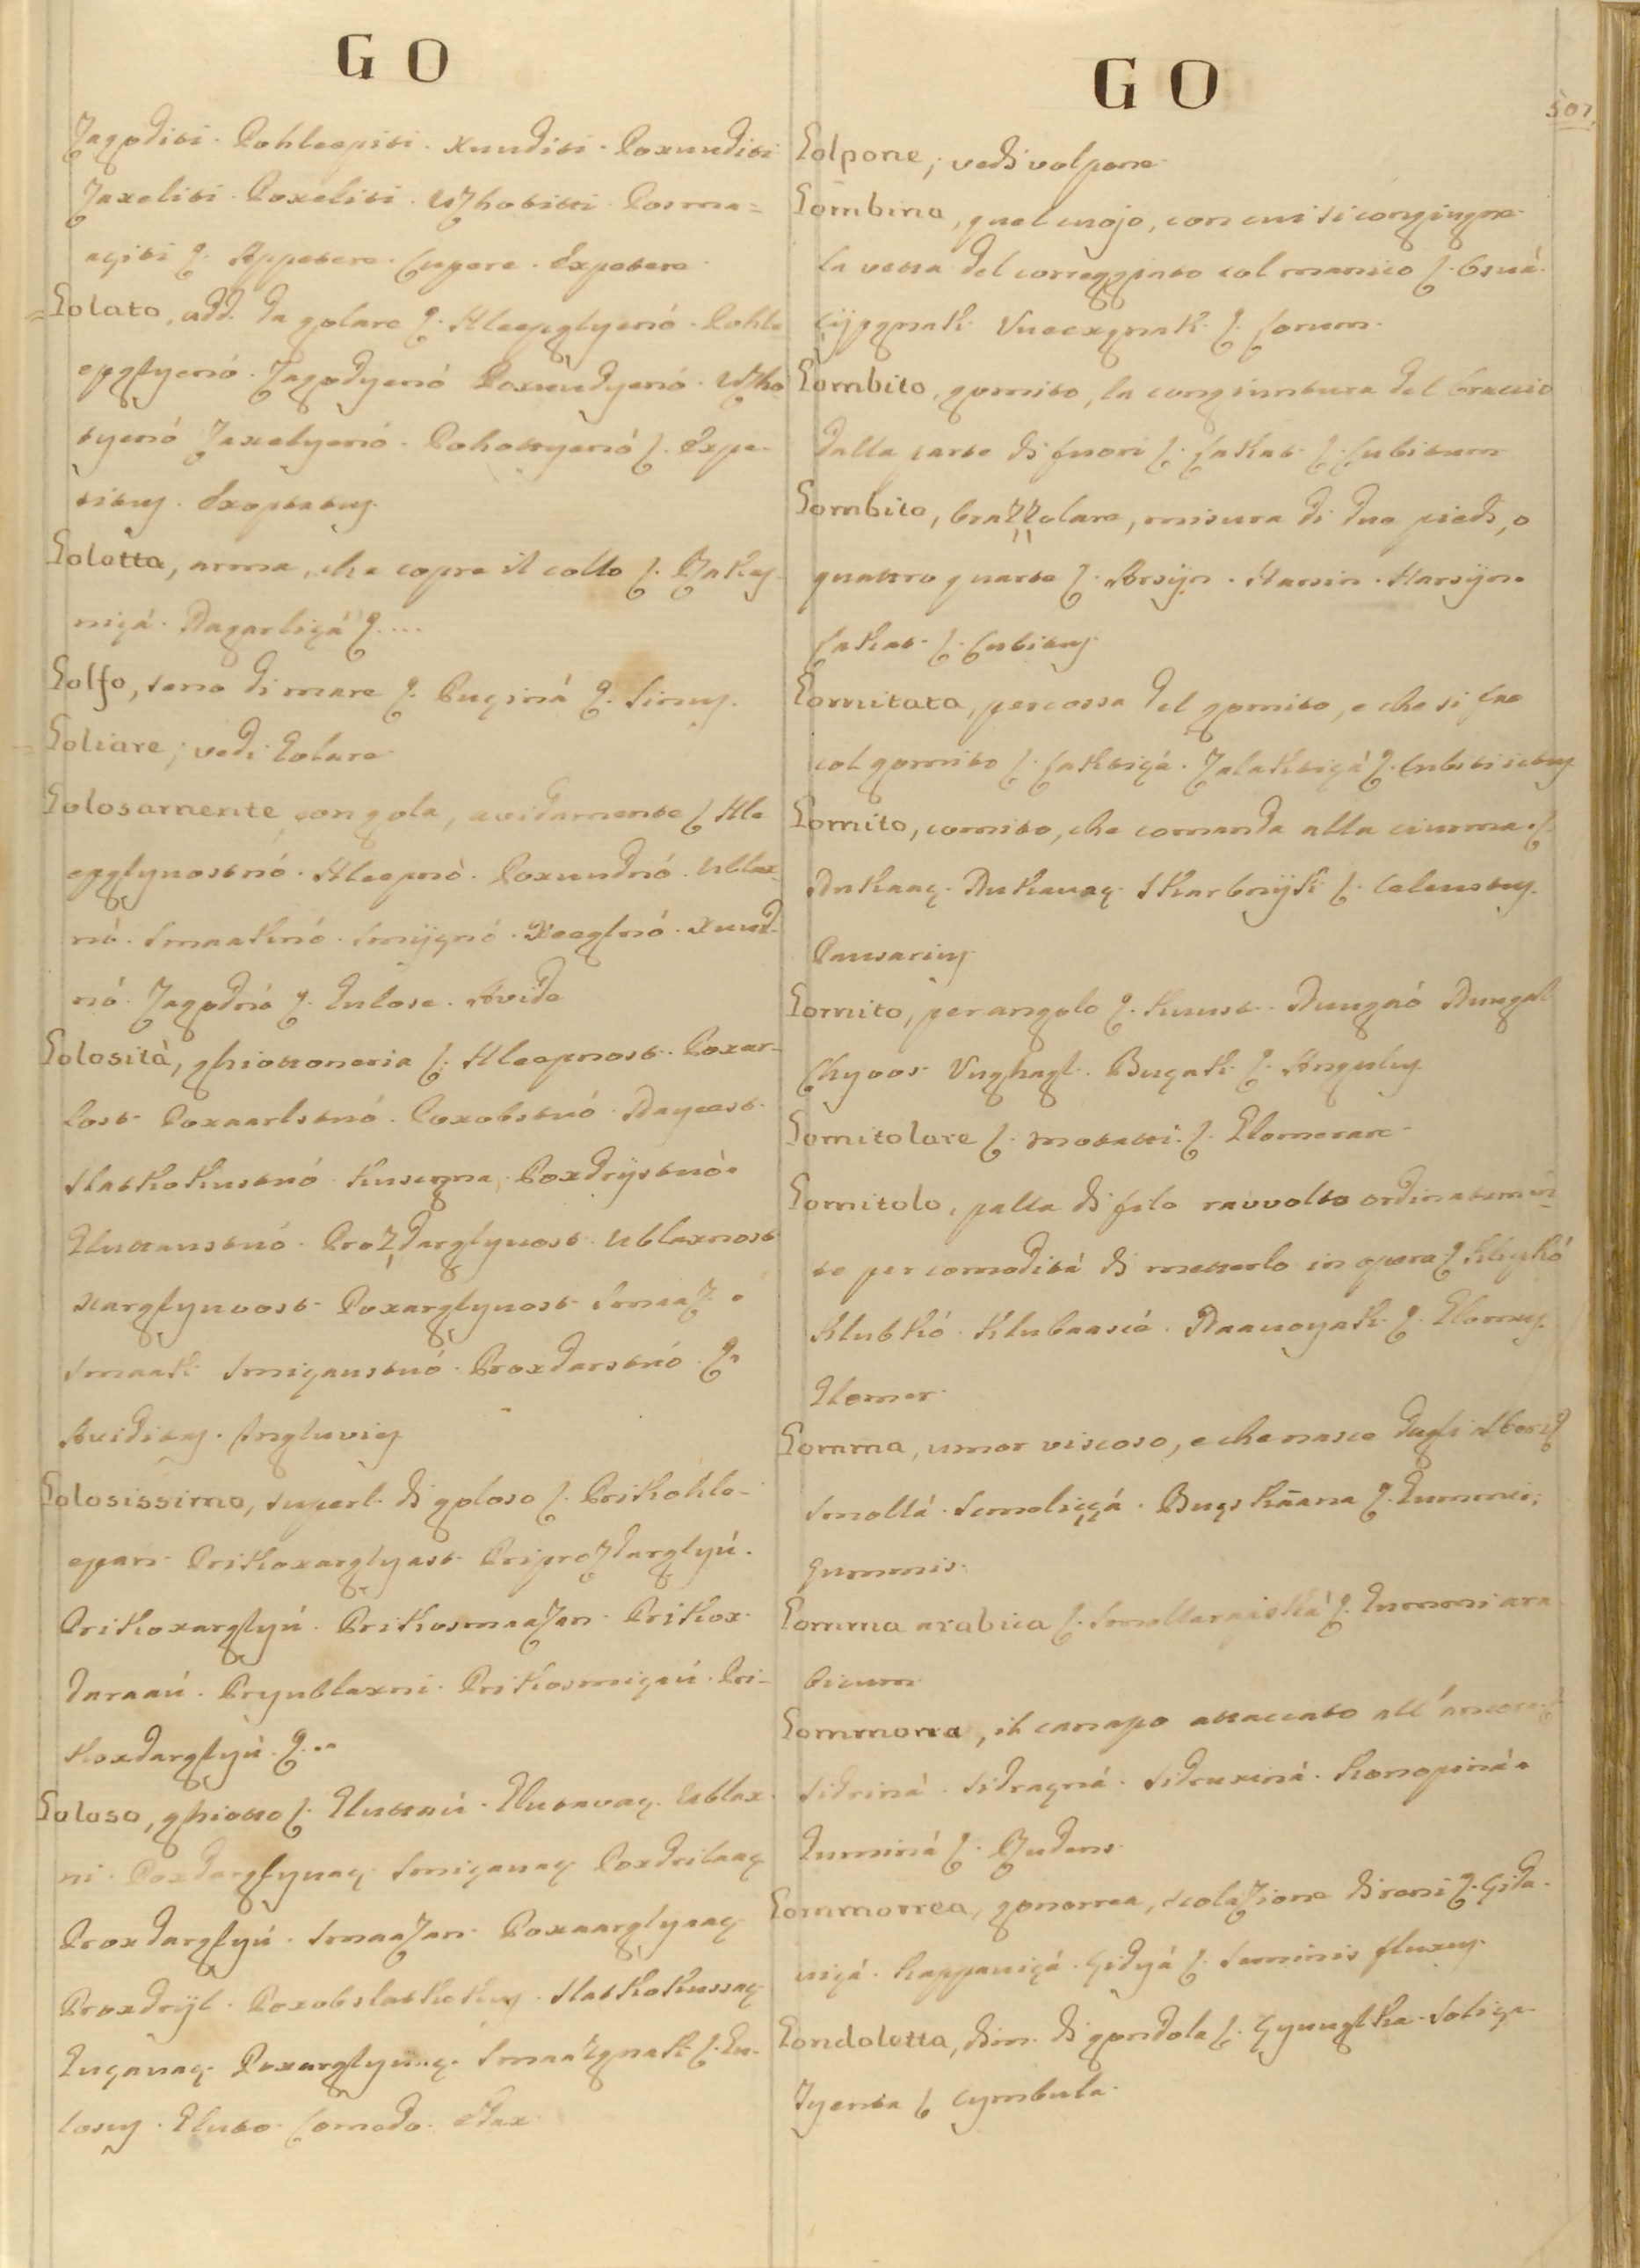 GO
Zagoditi. Pohleepiti. Xuuditi. Poxuuditi
Zaxeliti. Poxeliti. Uzhotitti. Posma=
agiti L. Appetere. Cupere. Expetere.
Golato, add. da golare L. Hleepglyenó. Pohle
epglyenó. Zagodyenó Poxuudyenó. Uzho
tyenó Zaxelyenó. Pohottyenó L. Expe-
titus. Exoptatus.
Goletta, arma, che copre il collo L.
niçá. Dagarliçá L....
Golfo, seno di mare L. Puçiná L. Sinus.
Goliare; vedi Golare.
Golosamente con gola, avidamente L Hle
epglyuostnó. Hleepnò. Poxuudnó. Ublax-
nó. Smaaknó. Smijçnó. Xeeglnó. Xuud-
nó. Zagodnó L. Gulose. Avide
Golosità, ghiottoneria L. Hleepnost. Poxar-
lost. Poxaarlstuó. Poxobstuó.
Slatkokustuó Poxdrijstuò.
Gluttaustuó. Prozdarglyuost Ublaxnost
xarglyuvost. Poxarglyuost Smaaz.
Smaak Smiçaustuó. Proxdarstuó. L.
Aviditas. Ingluvies
Golosissimo, superl. di goloso L. Prikohle-
epan. Prikoxarglyast. Priprozdarglyú.
Prikoxarglyú. Prikosmaazan. Prikox-
daraaú. Pryublaxni. Prikosmiçaú. Pri-
koxdarglyú. L...
Goloso, ghiotto L. Gluttaú. Glutavaç. Ublax-
ni. Poxdarglyuaç. Smiçauaç Poxdrilaaç
Proxdarglyú. Smaazan. Poxaarglyaaç
Proxdrijl. Poxobslatkokus. Slatkokussaç
Guçauaç. Poxarglyuaç. Smaazgnak L. Gu-
losus. Gluto. Comedo. Edax.
GO
507.
Golpone; vedi volpone.
Gombina, quel cuojo, con cui si congiugne
la vetta del correggiato col manico L. Gsuá.
çijpgnak. Vueexgnak. L. Lorum.
Gombito, gomito, la congiuntura del braccio
dalla parte di fuori L. Lakat. L. Cubitum
Gombito, brazzolare, misura di due piedi, o
quattro quarte L. Arsijn. Harsin. Harsijn.
Lakat. L. Cubitus.
Gomitata, percossa del gomito, e che si fae
col gomito L. Laktiçá. Zalaktiçá L. Cubiti ictus
Gomito, comito, che comanda alla ciurma. L.
Dukaaç. Dukavaç. Skarbnijk L. Celeustes.
Pausarius
Gomito, per angolo L. Kuust.
Vughagl. Buçak L. Angulus.
Gomitolare L. Motatti. L. Glomerare.
Gomitolo, palla di filo ravvolto ordinatamen=
te per comodità di metterlo in opera L
Klubkó. Klubaasié. L. Glomus.
Glomer.
Gomma, umor viscoso, e che nasce dagli alberi L
Smollá. Smoliççá. L. Gummi;
gummis.
Gomma arabica L. L. Gummi ara
bicum.
Gommona, il canapo attaccato all'ancora L
Sidriná. Sidragná. Sidruxiná. Konopiná.
Guminá L. Rudens.
Gommorrea, gonorrea, scolazione di reni L. Gida-
viçá. Kappaviçá. Gidyá L. Seminis fluxus.
Gondoletta, dim. di gondola L.
L Cymbula.